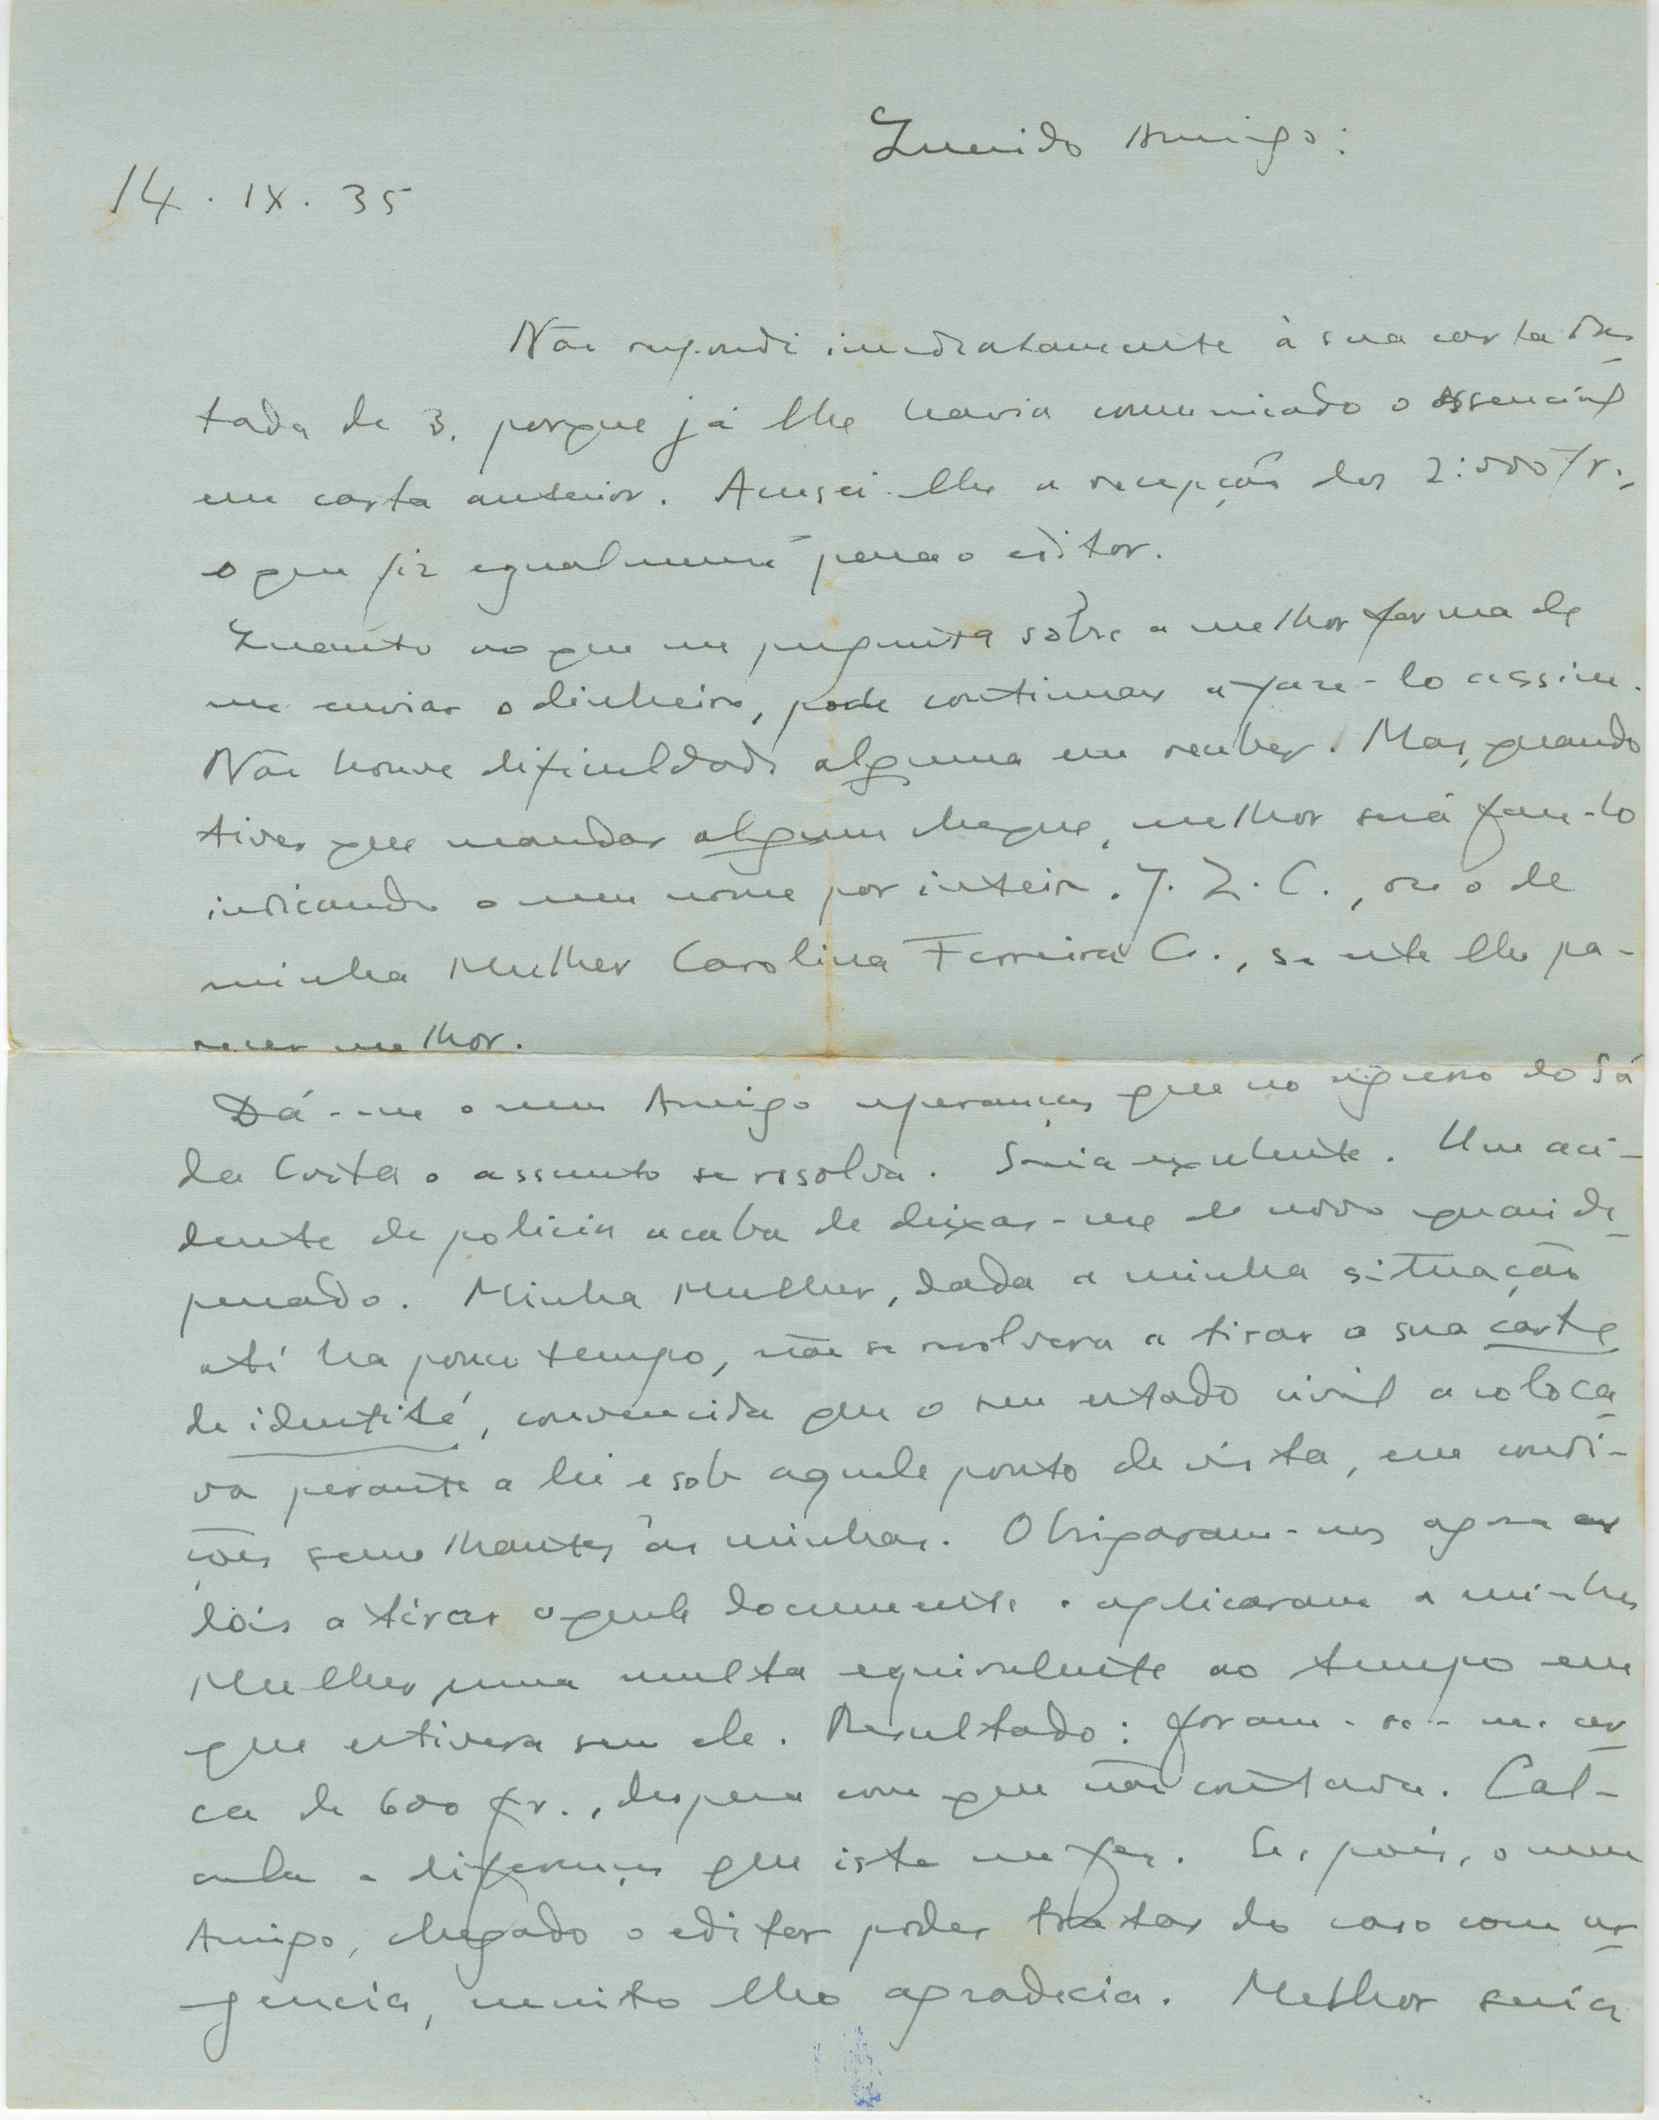 Querido Amigo:
14. IX. 35
Não respondi imediatamente à sua carta da-
tada de 3, porque já lhe havia comunicado o essencial
em carta anterior. Acusei-lhe a recepção dos 2:000 fr.,
o que fiz egualmente para o editor.
Quanto ao que me pregunta sôbre a melhor forma de
me enviar o dinheiro, pode continuar a faze-lo assim.
Não houve dificuldade alguma em receber. Mas, quando
tiver que mandar algum cheque, melhor será faze-lo
indicando o meu nome por inteiro. J. Z. C., ou o de
minha Mulher Carolina Ferreira C., se este lhe pa-
recer melhor.
Dá-me o meu Amigo esperanças que no regresso do Sá
da Costa o assunto se resolva. Seria excelente. Um aci-
dente de policia acaba de deixar-me de novo quasi de-
penado. Minha Mulher, dada a minha situação
até ha pouco tempo, não se resolvera a tirar a sua carte
de identité, convencida que o seu estado civil a coloca-
va perante a lei e sob aquele ponto de vista, em condi-
ções semelhantes às minhas. Obrigaram-nos agora aos
dois a tirar aquele documento e aplicaram a minha
Mulher uma multa equivalente ao tempo em
que estivera sem ele. Resultado: foram-se-me cer-
ca de 600 fr., despesa com que não contava. Cal-
cula a diferença que isto me fez. Se, pois, o meu
Amigo, chegado o editor poder tratar do caso com ur-
gencia, muito lho agradecia. Melhor seria